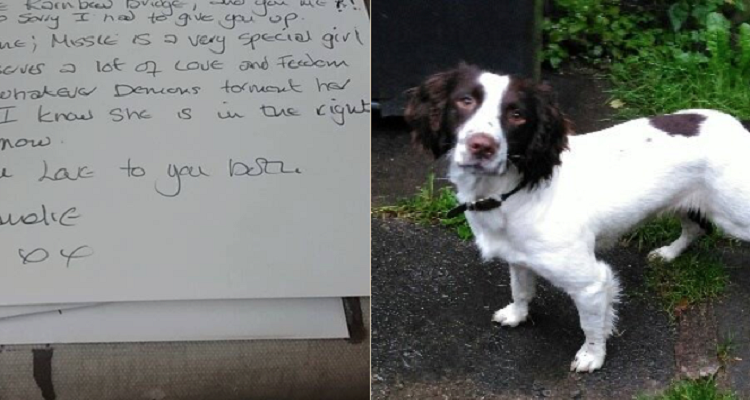 Rainbow Bridge, and you me
so sorry I had to give you up.
me; Missie is a very special girl
serves a lot of Love and Feedom
whatever Demons torment her
I know she is in the right
now.
Love to you both